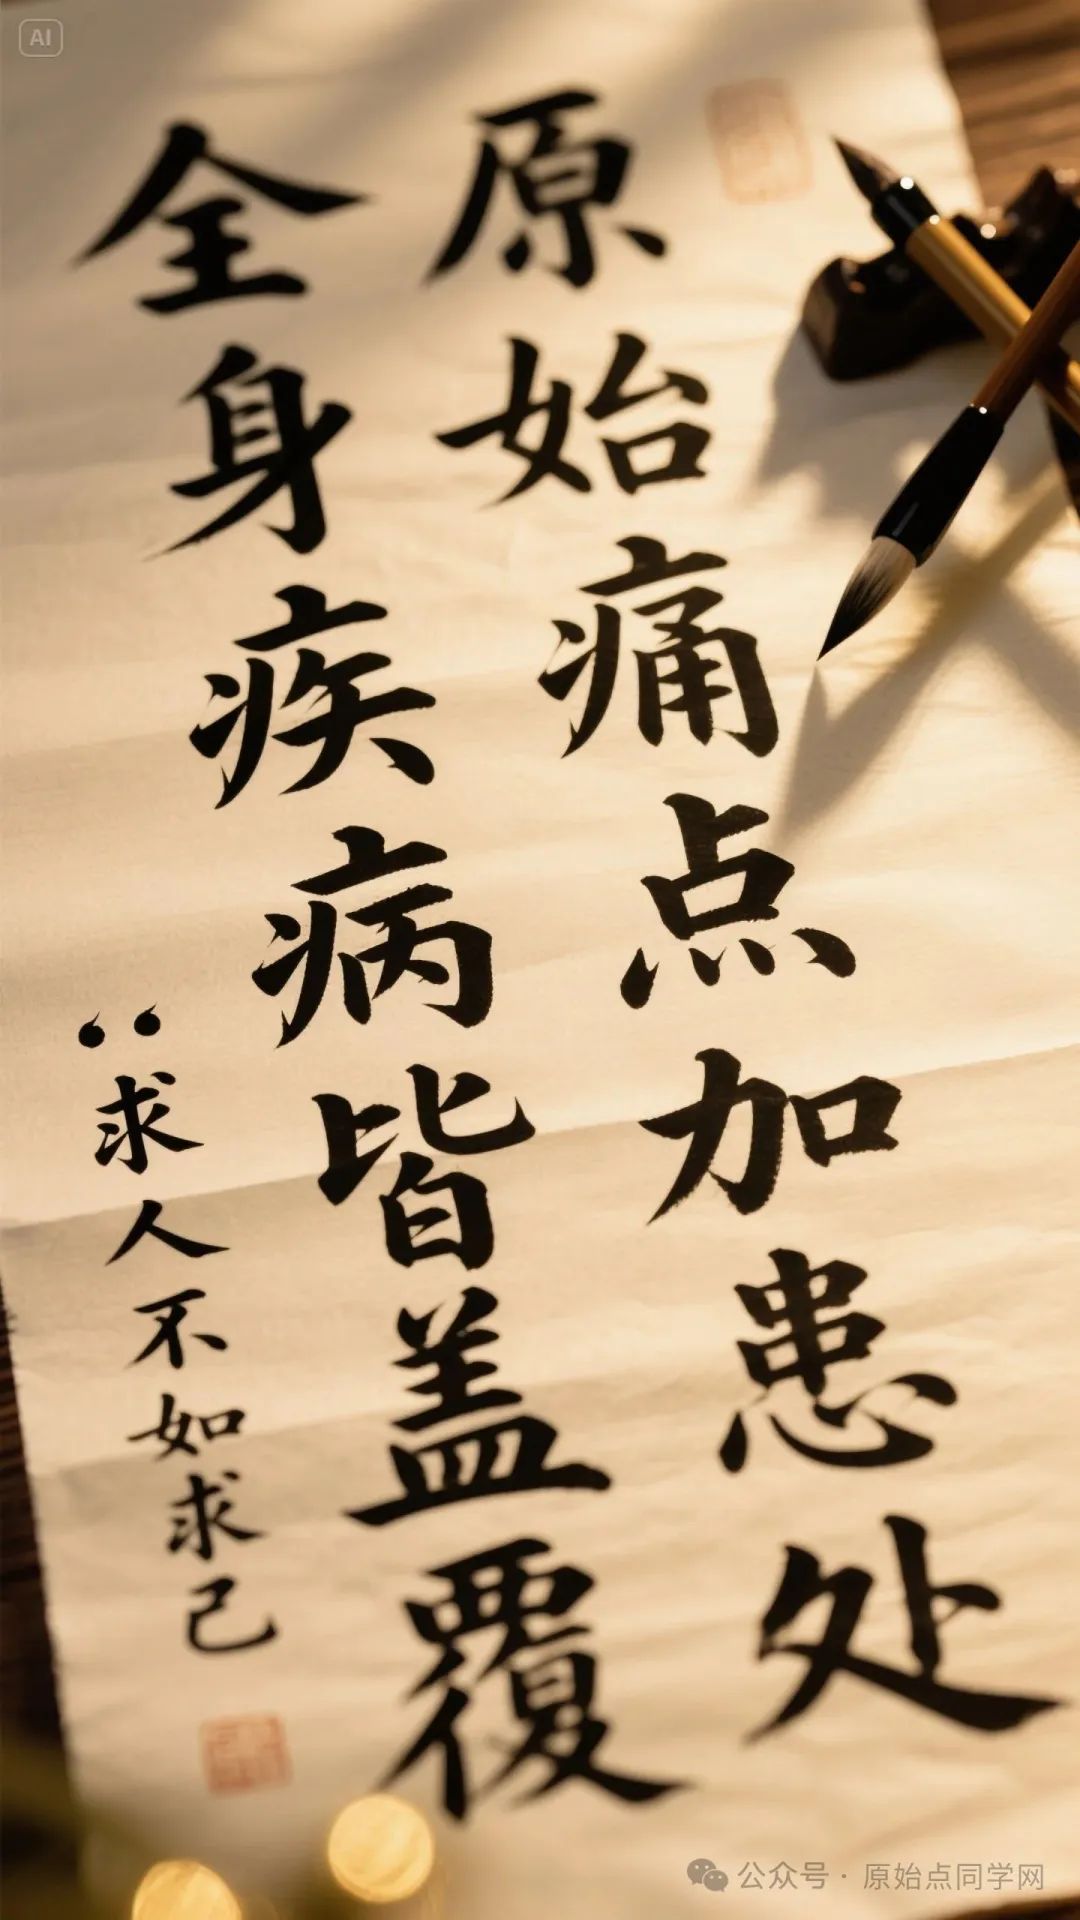 AI
原始痛点加患处
全身疾病皆盖覆
“求人不如求己
公众号 · 原始点同学网